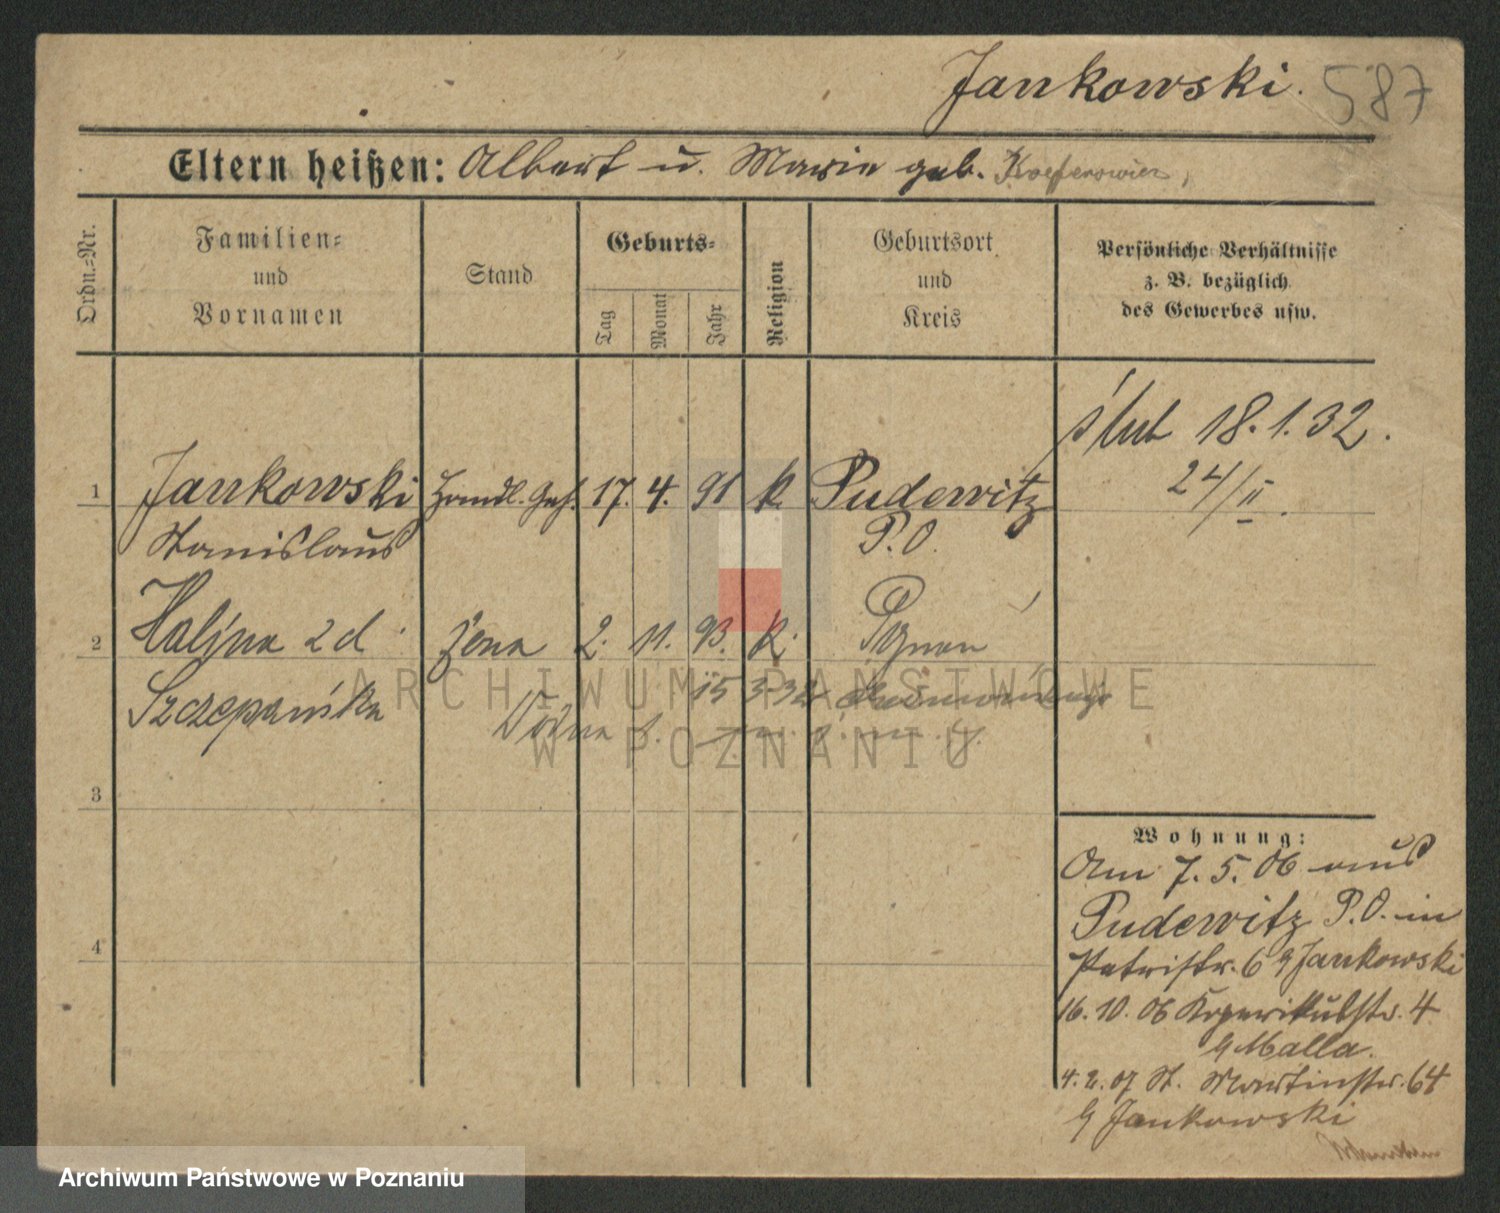 Jankowski. 587
Eltern heißen: Albert u. Marie geb.
Ordn.-Nr.
Familien-
und
Vornamen
Stand
Geburts-
Tag
Monat
Jahr
Religion
Geburtsort
und
Kreis
Persönliche Verhältnisse
z. B. bezüglich
des Gewerbes usw.
ślub 18.1.32.
24/II.
1 Jankowski Handl. Geh. 17. 4. 91 k. Pudewitz
Stanislaus P.O.
2 Halina 2d żona 2. 11. 93. k. Poznań
Szczepanika 15 3 32
3
4
Wohnung:
Am 7. 5. 06 aus
Pudewitz P.O. in
Petristr. 6 b/ Jankowski
16. 10. 06 Kopernikusstr. 4
b/ Malla.
4. 2. 07 St. Martinstr. 64
b/ Jankowski
ARCHIWUM PAŃSTWOWE
W POZNANIU
Archiwum Państwowe w Poznaniu